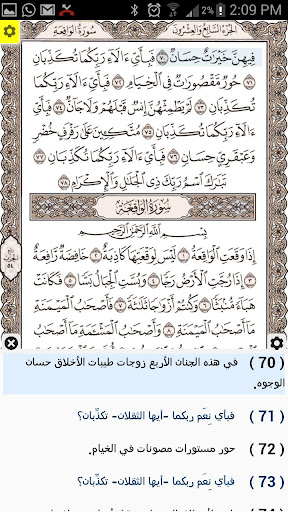 2:09 PM
سورة الواقعة
الجزء السابع والعشرون
فِيهِنَّ خَيْرَاتٌ حِسَانٌ ٧٠ فَبِأَيِّ ءَالَآءِ رَبِّكُمَا تُكَذِّبَانِ
٧١ حُورٌ مَّقْصُورَاتٌ فِي الْخِيَامِ ٧٢ فَبِأَيِّ ءَالَآءِ رَبِّكُمَا
تُكَذِّبَانِ ٧٣ لَمْ يَطْمِثْهُنَّ إِنسٌ قَبْلَهُمْ وَلَا جَانٌّ ٧٤ فَبِأَيِّ
ءَالَآءِ رَبِّكُمَا تُكَذِّبَانِ ٧٥ مُتَّكِئِينَ عَلَىٰ رَفْرَفٍ خُضْرٍ
وَعَبْقَرِيٍّ حِسَانٍ ٧٦ فَبِأَيِّ ءَالَآءِ رَبِّكُمَا تُكَذِّبَانِ ٧٧
تَبَارَكَ اسْمُ رَبِّكَ ذِي الْجَلَالِ وَالْإِكْرَامِ ٧٨
سُورَةُ الْوَاقِعَةِ
بِسْمِ اللَّهِ الرَّحْمَٰنِ الرَّحِيمِ
إِذَا وَقَعَتِ الْوَاقِعَةُ ١ لَيْسَ لِوَقْعَتِهَا كَاذِبَةٌ ٢ خَافِضَةٌ رَّافِعَةٌ
٣ إِذَا رُجَّتِ الْأَرْضُ رَجًّا ٤ وَبُسَّتِ الْجِبَالُ بَسًّا ٥ فَكَانَتْ
هَبَآءً مُّنۢبَثًّا ٦ وَكُنتُمْ أَزْوَاجًا ثَلَاثَةً ٧ فَأَصْحَابُ الْمَيْمَنَةِ
مَآ أَصْحَابُ الْمَيْمَنَةِ ٨ وَأَصْحَابُ الْمَشْـَٔمَةِ مَآ أَصْحَابُ
(70) في هذه الجنان الأربع زوجات طيبات الأخلاق حسان
الوجوه.
(71) فبأي نِعَم ربكما -أيها الثقلان- تكذِّبان؟
(72) حور مستورات مصونات في الخيام.
(73) فبأي نِعَم ربكما -أيها الثقلان- تكذِّبان؟